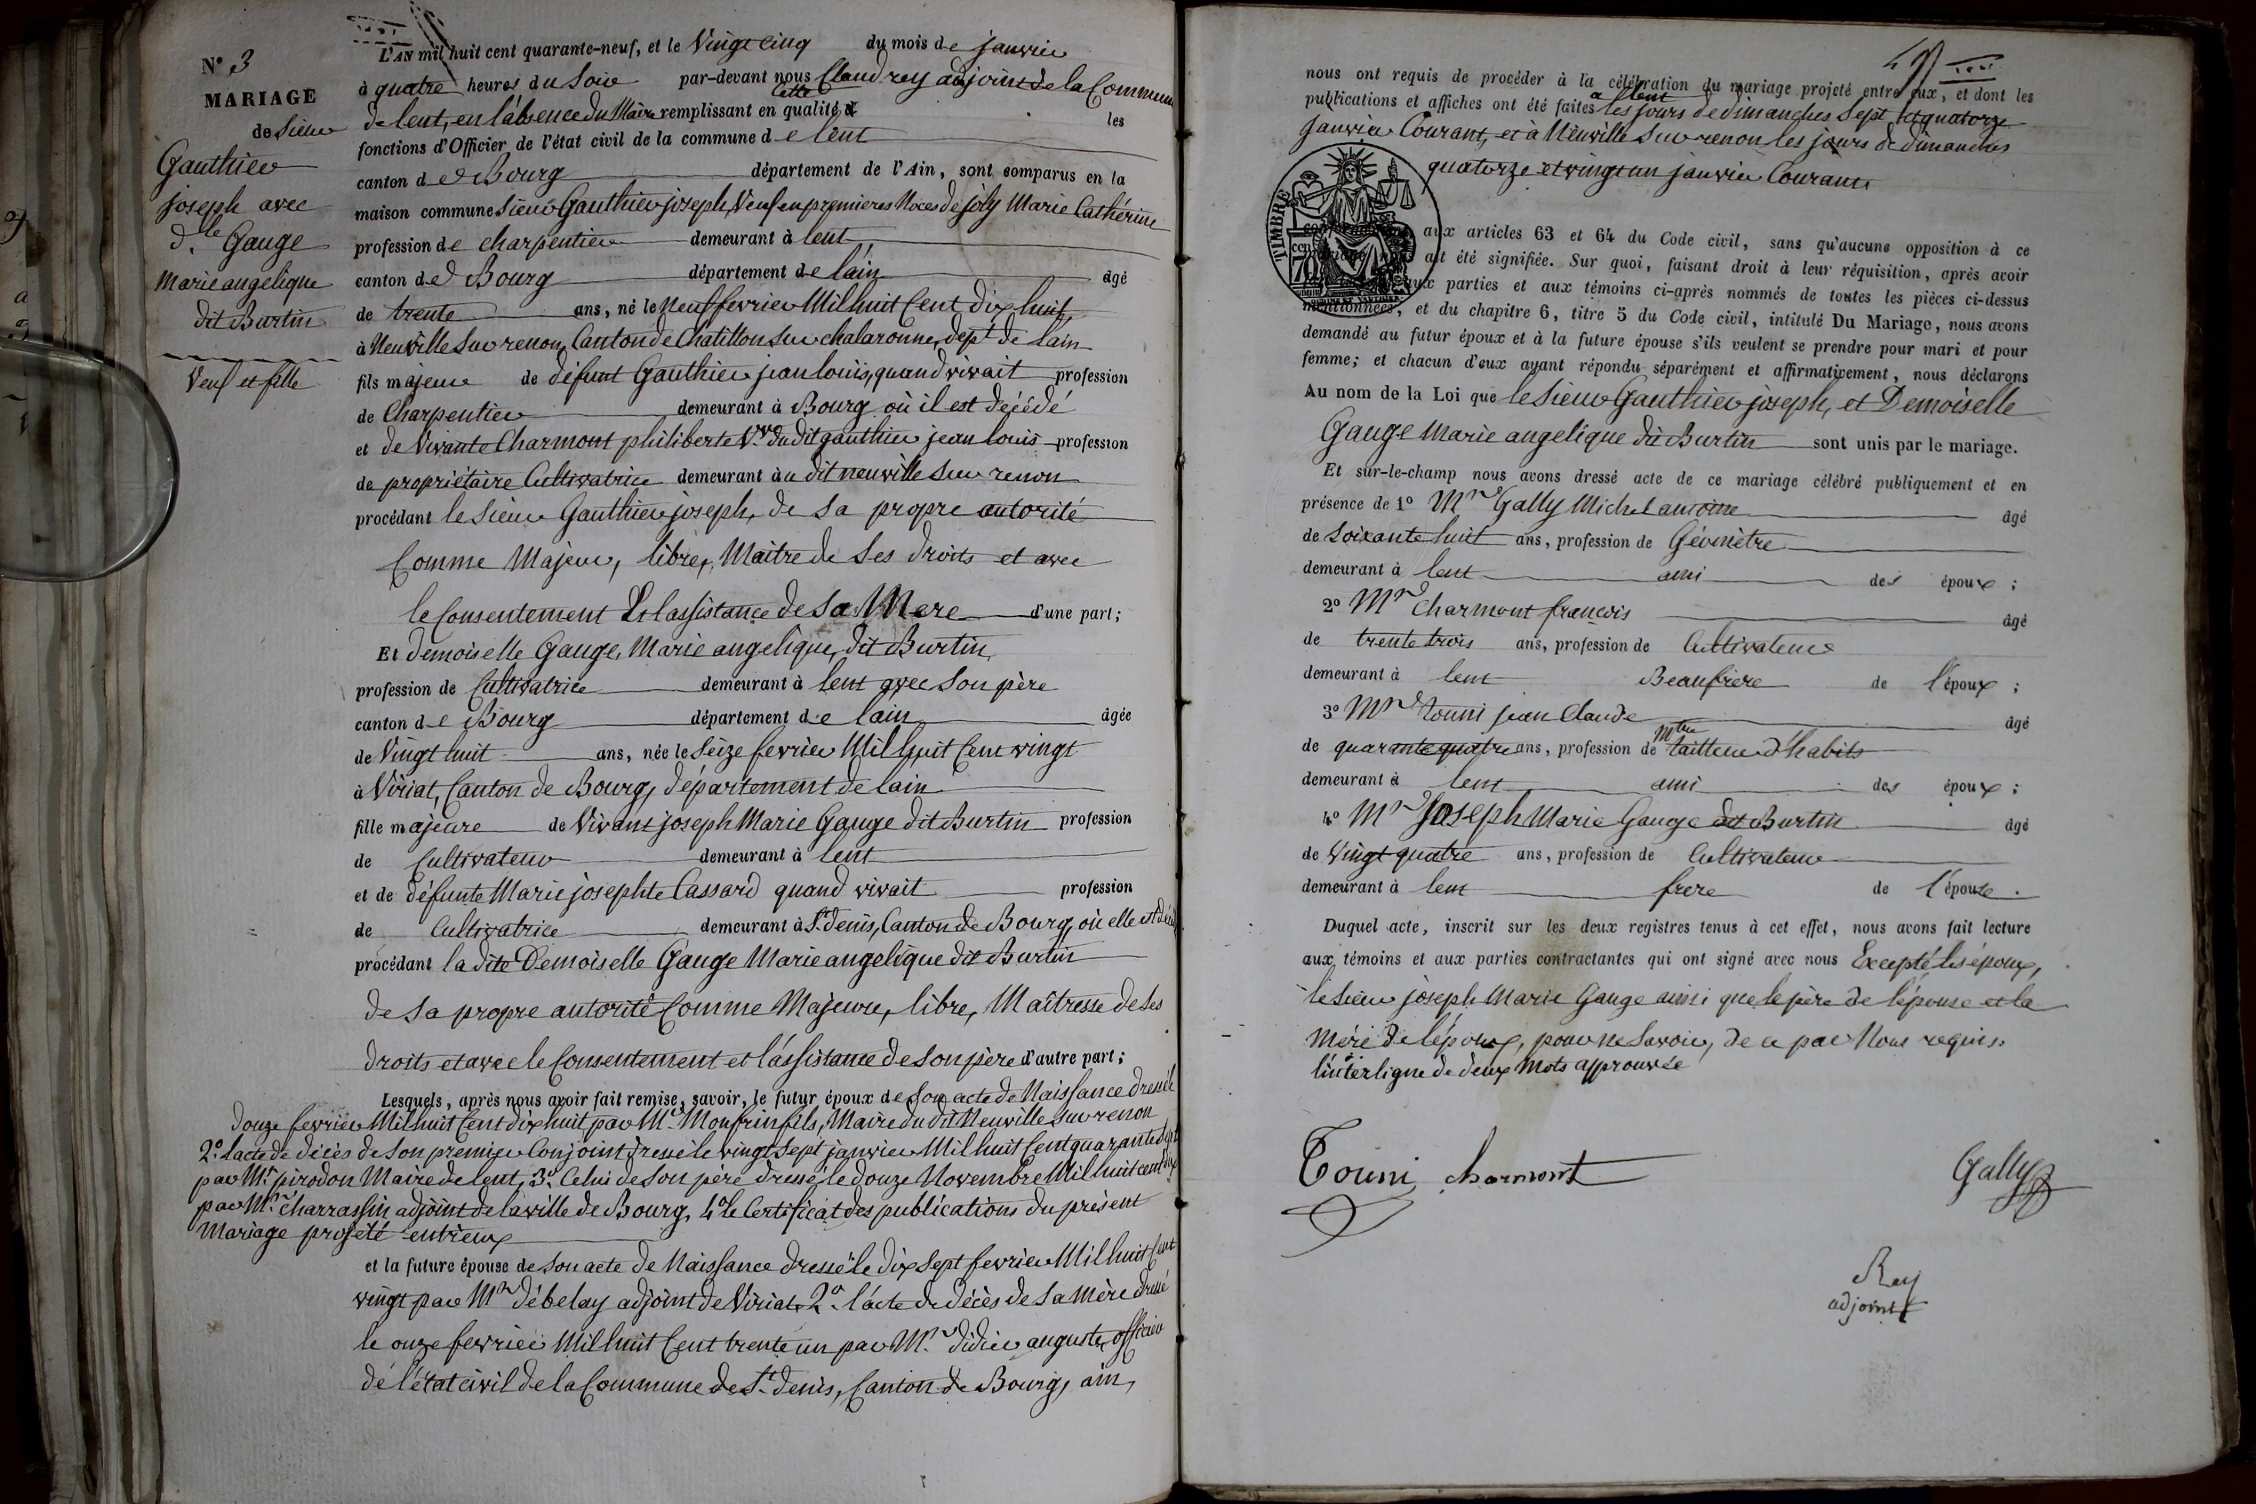 N° 3
MARIAGE
de Sieur
Gauthier
joseph avec
d.lle Gauge
Marie angelique
dit Burtin
Veuf et fille
L'AN mil huit cent quarante-neuf, et le Vingt cinq du mois de janvier
à quatre heures du Soir par-devant nous Claud rey adjoint de la Commune
de lent, en l'absence du Maire remplissant en cette qualité les
fonctions d'Officier de l'état civil de la commune de lent
canton de Bourg département de l'Ain, sont comparus en la
maison commune Sieur Gauthier joseph, Veuf en premieres Noces de joly Marie Cathérine
profession de charpentier demeurant à lent
canton de Bourg département de l'ain âgé
de trente ans, né le neuf fevrier Mil huit Cent dix huit,
à Neuville Sur renon, Canton de Chatillon Sur chalaronne, dépt de lain
fils majeur de défunt Gauthier jean louis, quand vivait profession
de Charpentier demeurant à Bourg où il est décédé
et de Vivante Charmont philiberte Vve du dit gauthier jean louis profession
de propriétaire Cultivatrice demeurant au dit neuville Sur renon
procédant le Sieur Gauthier joseph, de Sa propre autorité
Comme Majeur, libre, Maitre de Ses droits et avec
le Consentement Et lassistance de Sa Mere d'une part;
Et demoiselle Gauge, Marie angelique, dit Burtin,
profession de Cultivatrice demeurant à lent avec Son père
canton de Bourg département de lain âgée
de Vingt huit ans, née le Seize fevrier Mil huit Cent vingt
à Viriat, Canton de Bourg, département de lain
fille majeure de Vivant joseph Marie Gauge dit Burtin profession
de Cultivateur demeurant à lent
et de défunte Marie josephte Cassard quand vivait profession
de Cultivatrice demeurant à St denis, Canton de Bourg, où elle est
procédant la dite Demoiselle Gauge Marie angelique dit Burtin
de Sa propre autorité Comme Majeure, libre, Maîtresse de Ses
droits et avec le Consentement et l'assistance de Son père d'autre part;
Lesquels, après nous avoir fait remise, savoir, le futur époux de Son acte de Naissance dressé le
douze fevrier Mil huit Cent dix huit, par Mr Monfrin fils, Maire du dit Neuville Sur renon
2° lacte de décès de Son premier Conjoint dressé le vingt Sept janvier Mil huit Cent quarante Sept
par Mr pirodon Maire de lent, 3° Celui de Son père dressé le douze Novembre Mil huit cent
par Mr charrassin adjoint de la ville de Bourg, 4° le Certificat des publications du présent
Mariage projeté entreux
et la future épouse de Son acte de Naissance dressé le dix Sept fevrier Mil huit Cent
vingt par Mr débelay adjoint de Viriat, 2° l'acte de décès de Sa Mère dressé
le onze fevrier Mil huit Cent trente un par Mr didier auguste, officier
de l'état civil de la Commune de St denis, Canton de Bourg, ain,
nous ont requis de procéder à la célébration du mariage projeté entre eux, et dont les
publications et affiches ont été faites à lent les jours de dimanches Sept et quatorze
janvier Courant, et à Neuville Sur renon les jours de dimanches
quatorze et vingt un janvier Courant
TIMBRE
aux articles 63 et 64 du Code civil, sans qu'aucune opposition à ce
ait été signifiée. Sur quoi, faisant droit à leur réquisition, après avoir
aux parties et aux témoins ci-après nommés de toutes les pièces ci-dessus
mentionnées, et du chapitre 6, titre 5 du Code civil, intitulé Du Mariage, nous avons
demandé au futur époux et à la future épouse s'ils veulent se prendre pour mari et pour
femme; et chacun d'eux ayant répondu séparément et affirmativement, nous déclarons
Au nom de la Loi que le Sieur Gauthier joseph, et Demoiselle
Gauge Marie angelique dit Burtin sont unis par le mariage.
Et sur-le-champ nous avons dressé acte de ce mariage célébré publiquement et en
présence de 1° Mr Gally Michel antoine âgé
de Soixante huit ans, profession de Géomètre
demeurant à lent ami des époux;
2° Mr Charmont françois âgé
de trente trois ans, profession de Cultivateur
demeurant à lent Beaufrère de l'époux;
3° Mr Touni jean Claude âgé
de quarante quatre ans, profession de Mtre tailleur d'habits
demeurant à lent ami des époux;
4° Mr Joseph Marie Gauge dit Burtin âgé
de Vingt quatre ans, profession de Cultivateur
demeurant à lent frere de l'épouse.
Duquel acte, inscrit sur les deux registres tenus à cet effet, nous avons fait lecture
aux témoins et aux parties contractantes qui ont signé avec nous Excepté les époux,
le Sieur joseph Marie Gauge ainsi que le père de l'épouse et la
mère de l'époux, pour ne Savoir, de ce par Nous requis.
l'interligne de deux Mots approuvée
Touni charmont Gally
Rey
adjoint